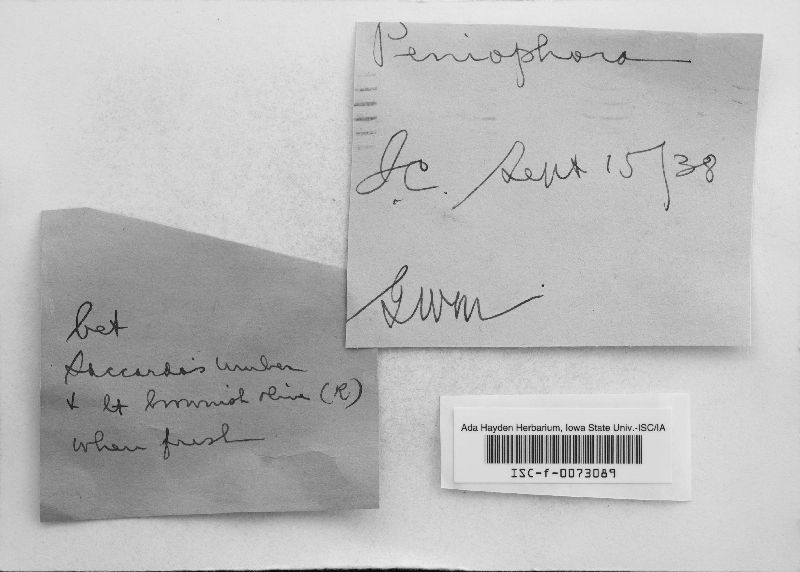 Peniophora
I.C. Sept 15/38
GWM
bet
Saccardo's umber
& lt brownish olive (R)
when fresh
Ada Hayden Herbarium, Iowa State Univ.-ISC/IA
ISC-f-0073089